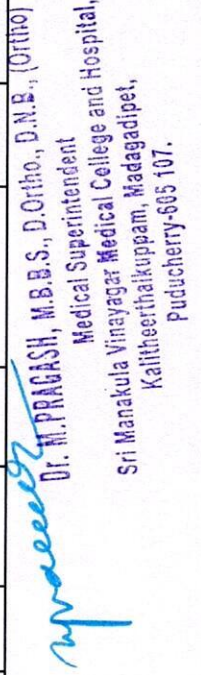 Dr. M.PRAGASH, M.B.B.S., D.Ortho., D.N.B., (Ortho)
Medical Superintendent
Sri Manakula Vinayagar Medical College and Hospital,
Kalitheerthalkuppam, Madagadipet,
Puducherry-605 107.